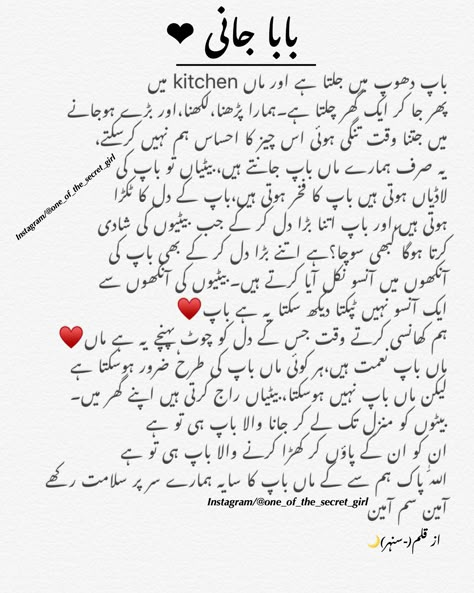 بابا جانی ❤
باپ دھوپ میں جلتا ہے اور ماں kitchen میں
پھر جا کر ایک گھر چلتا ہے۔ہمارا پڑھنا،لکھنا،اور بڑے ہوجانے
میں جتنا وقت تنگی ہوئی اس چیز کا احساس ہم نہیں کرسکتے،
یہ صرف ہمارے ماں باپ جانتے ہیں،بیٹیاں تو باپ کی
لاڈیاں ہوتی ہیں باپ کا فخر ہوتی ہیں،باپ کے دل کا ٹکڑا
ہوتی ہیں،اور باپ اتنا بڑا دل کر کے جب بیٹیوں کی شادی
کرتا ہوگا کبھی سوچا؟ہے اتنے بڑا دل کر کے بھی باپ کی
آنکھوں میں آنسو نکل آیا کرتے ہیں۔بیٹیوں کی آنکھوں سے
ایک آنسو نہیں ٹپکتا دیکھ سکتا یہ ہے باپ♥️
ہم کھانسی کرتے وقت جس کے دل کو چوٹ پہنچے یہ ہے ماں♥️
ماں باپ نعمت ہیں،ہر کوئی ماں باپ کی طرح ضرور ہوسکتا ہے
لیکن ماں باپ نہیں ہوسکتا،بیٹیاں راج کرتی ہیں اپنے گھر میں۔
بیٹوں کو منزل تک لے کر جانا والا باپ ہی تو ہے
ان کو ان کے پاؤں کر کھڑا کرنے والا باپ ہی تو ہے
اللہ پاک ہم سے کے ماں باپ کا سایہ ہمارے سر پر سلامت رکھے
آمین سم آمین
از قلم(-سنہر)🌙
Instagram/@one_of_the_secret_girl
Instagram/@one_of_the_secret_girl